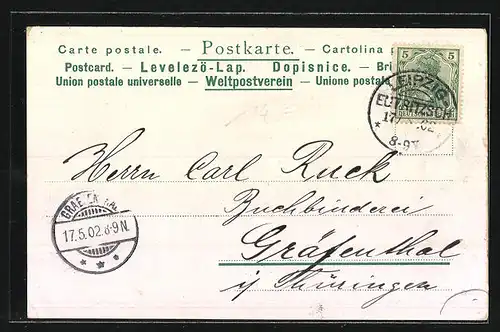 Carte postale. — Postkarte. — Cartolina
Postcard. — Levelező-Lap. Dopisnice. — Bri
Union postale universelle — Weltpostverein — Unione postale
5 5
LEIPZIG
EUTRITZSCH
02
8-9
Herrn Carl Ruck
Buchbinderei
Gräfenthal
i/ Thüringen
17.5.02.8-9N.